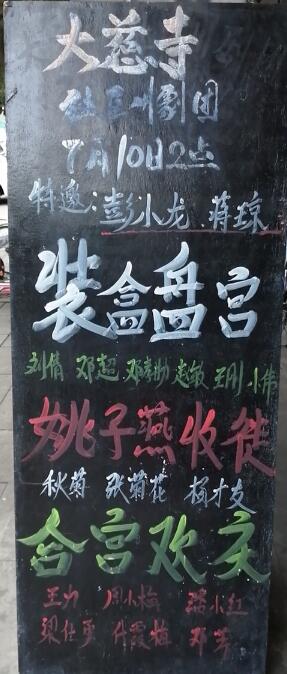 大慈寺
社区川剧团
7月10日2点
特邀：彭小龙 蒋琼
装盒盘宫
刘倩 邓超 邓孝帅 赵敏 王刚 小伟
姚子燕收徒
秋菊 张菊花 杨才友
合宫欢庆
王力 周小梅 小红
梁仕勇 邓芳